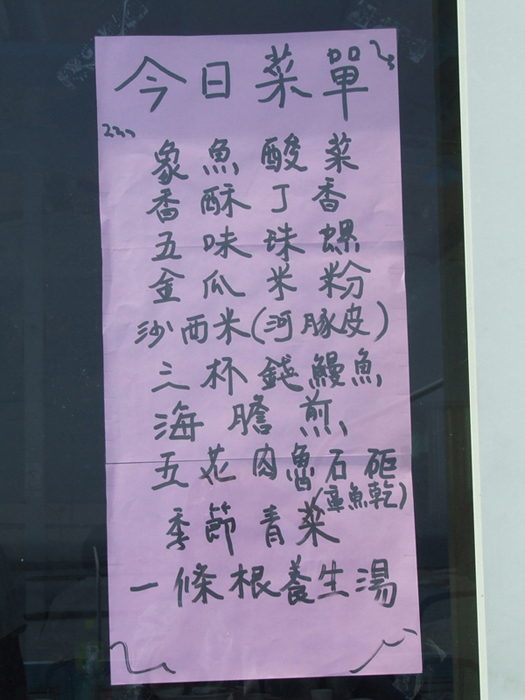 今日菜單
象魚酸菜
香酥丁香
五味珠螺
金瓜米粉
沙西米(河豚皮)
三杯錢鰻魚
海膽煎
五花肉魯石距
(章魚乾)
季節青菜
一條根養生湯